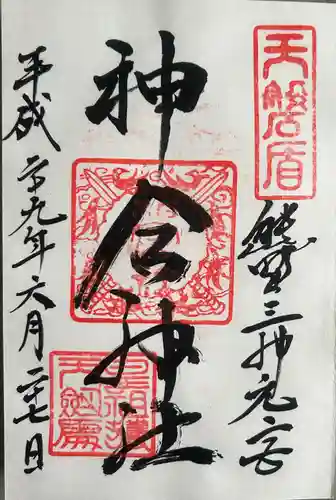 天磐盾
熊野三神元宮
神倉神社
平成二十九年六月二十七日